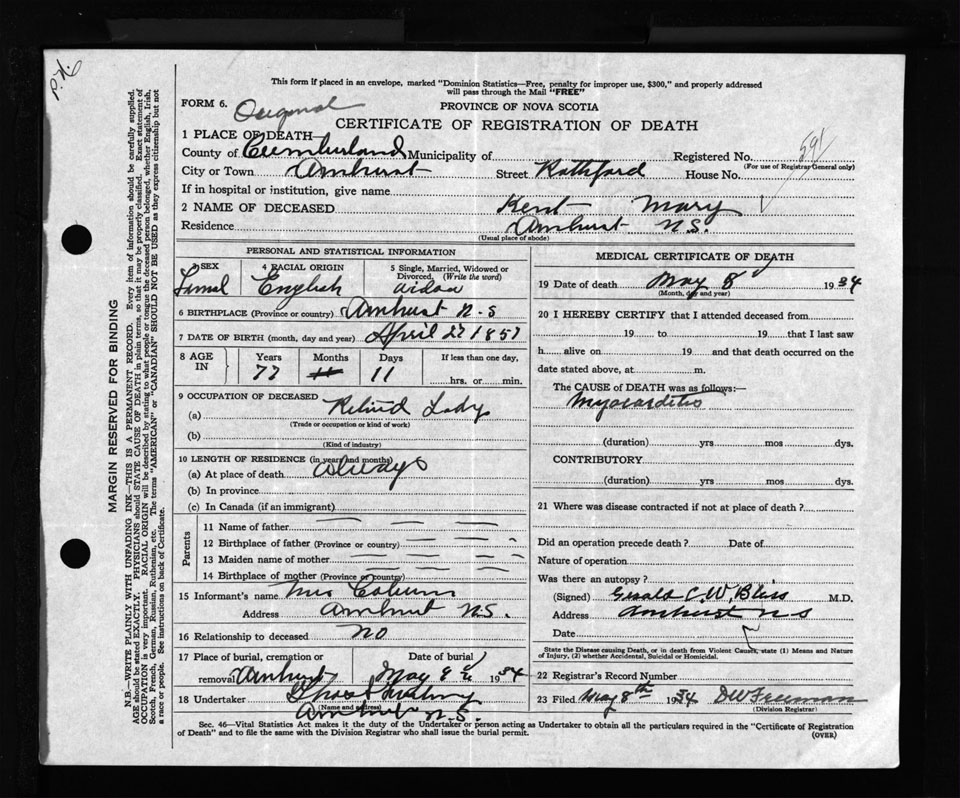 This form if placed in an envelope, marked "Dominion Statistics—Free, penalty for improper use, $300," and properly addressed
will pass through the Mail "FREE"
FORM 6. Original
PROVINCE OF NOVA SCOTIA
CERTIFICATE OF REGISTRATION OF DEATH
1 PLACE OF DEATH
County of Cumberland Municipality of Registered No. 591
(For use of Registrar General only)
City or Town Amherst Street House No.
If in hospital or institution, give name
2 NAME OF DECEASED Kent Mary
Residence Amherst N.S.
(Usual place of abode)
PERSONAL AND STATISTICAL INFORMATION
3 SEX 4 RACIAL ORIGIN 5 Single, Married, Widowed or
Divorced, (Write the word)
English
6 BIRTHPLACE (Province or country) Amhurst N.S
7 DATE OF BIRTH (month, day and year) April 27 1857
8 AGE IN Years Months Days If less than one day,
77 11 hrs. or min.
9 OCCUPATION OF DECEASED
(a) Retired Lady
(Trade or occupation or kind of work)
(b)
(Kind of industry)
10 LENGTH OF RESIDENCE (in years and months)
(a) At place of death always
(b) In province
(c) In Canada (if an immigrant)
Parents
11 Name of father
12 Birthplace of father (Province or country)
13 Maiden name of mother
14 Birthplace of mother (Province or country)
15 Informant's name Mrs
Address Amhurst N.S.
16 Relationship to deceased NO
17 Place of burial, cremation or Date of burial
removal Amhurst May 1934
18 Undertaker
(Name and address)
Amhurst N.S.
MEDICAL CERTIFICATE OF DEATH
19 Date of death May 8 1934
(Month, day and year)
20 I HEREBY CERTIFY that I attended deceased from
19 to 19 that I last saw
h alive on 19 and that death occurred on the
date stated above, at m.
The CAUSE of DEATH was as follows:—
Myocarditis
(duration) yrs mos dys.
CONTRIBUTORY
(duration) yrs. mos dys.
21 Where was disease contracted if not at place of death?
Did an operation precede death? Date of
Nature of operation
Was there an autopsy?
(Signed) Gerald C.W. Bliss M.D.
Address Amhurst N S
Date
State the Disease causing Death, or in death from Violent Causes, state (1) Means and Nature
of Injury, (2) whether Accidental, Suicidal or Homicidal.
22 Registrar's Record Number
23 Filed May 8th 1934 DW Freeman
(Division Registrar)
Sec. 46—Vital Statistics Act makes it the duty of the Undertaker or person acting as Undertaker to obtain all the particulars required in the "Certificate of Registration
of Death" and to file the same with the Division Registrar who shall issue the burial permit.
(OVER)
MARGIN RESERVED FOR BINDING
N.B.—WRITE PLAINLY WITH UNFADING INK—THIS IS A PERMANENT RECORD. Every item of information should be carefully supplied.
AGE should be stated EXACTLY. PHYSICIANS should STATE CAUSE OF DEATH in plain terms, so that it may be properly classified. Exact statement of
OCCUPATION is very important. RACIAL ORIGIN will be described by stating to what people or tongue the deceased person belonged, whether English, Irish,
Scotch, French, German, Russian, Ruthenian, etc. The terms "AMERICAN" or "CANADIAN" SHOULD NOT BE USED as they express citizenship but not
a race or people. See instructions on back of Certificate.